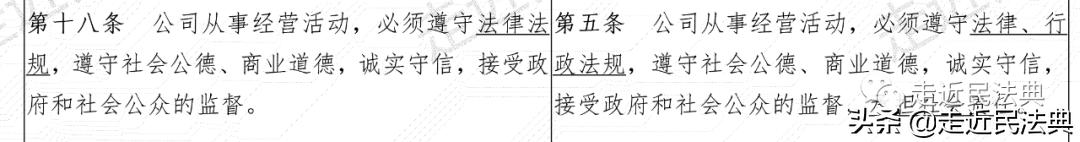 第十八条 公司从事经营活动，必须遵守法律法
规，遵守社会公德、商业道德，诚实守信，接受政
府和社会公众的监督。
第五条 公司从事经营活动，必须遵守法律、行
政法规，遵守社会公德、商业道德，诚实守信，
接受政府和社会公众的监督
走近民法典
头条 @走近民法典